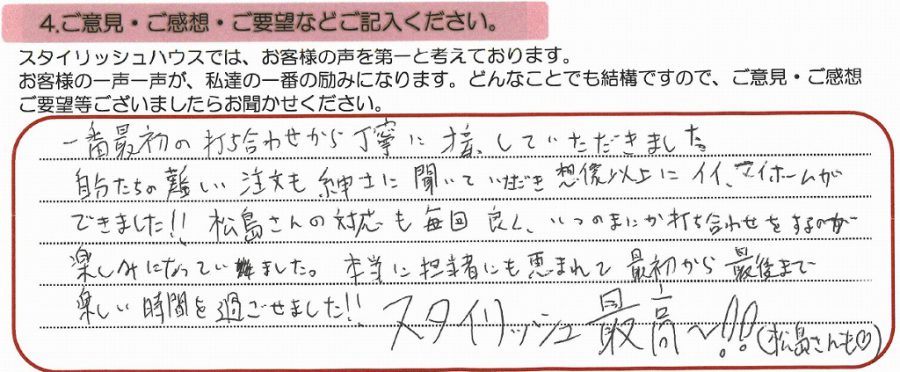 4.ご意見・ご感想・ご要望などご記入ください。
スタイリッシュハウスでは、お客様の声を第一と考えております。
お客様の一声一声が、私達の一番の励みになります。どんなことでも結構ですので、ご意見・ご感想
ご要望等ございましたらお聞かせください。
一番最初の打ち合わせから丁寧に接していただきました。
自分たちの難しい注文も紳士に聞いていただき想像以上にイイ、マイホームが
できました!! 松島さんの対応も毎回良く、いつのまにか打ち合わせをするのが
楽しみになっていました。本当に担当者にも恵まれて最初から最後まで
楽しい時間を過ごせました!!
スタイリッシュ最高〜!!!(松島さんも♡)